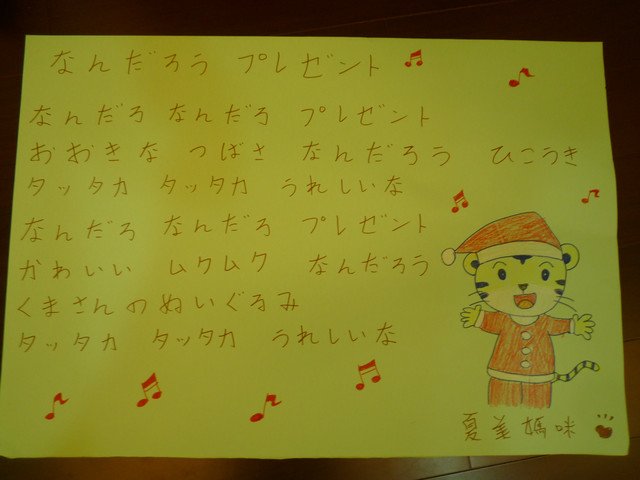 なんだろう プレゼント
なんだろ なんだろ プレゼント
おおきな つばさ なんだろう ひこうき
タッタカ タッタカ うれしいな
なんだろ なんだろ プレゼント
かわいい ムクムク なんだろう
くまさんのぬいぐるみ
タッタカ タッタカ うれしいな
夏美媽咪